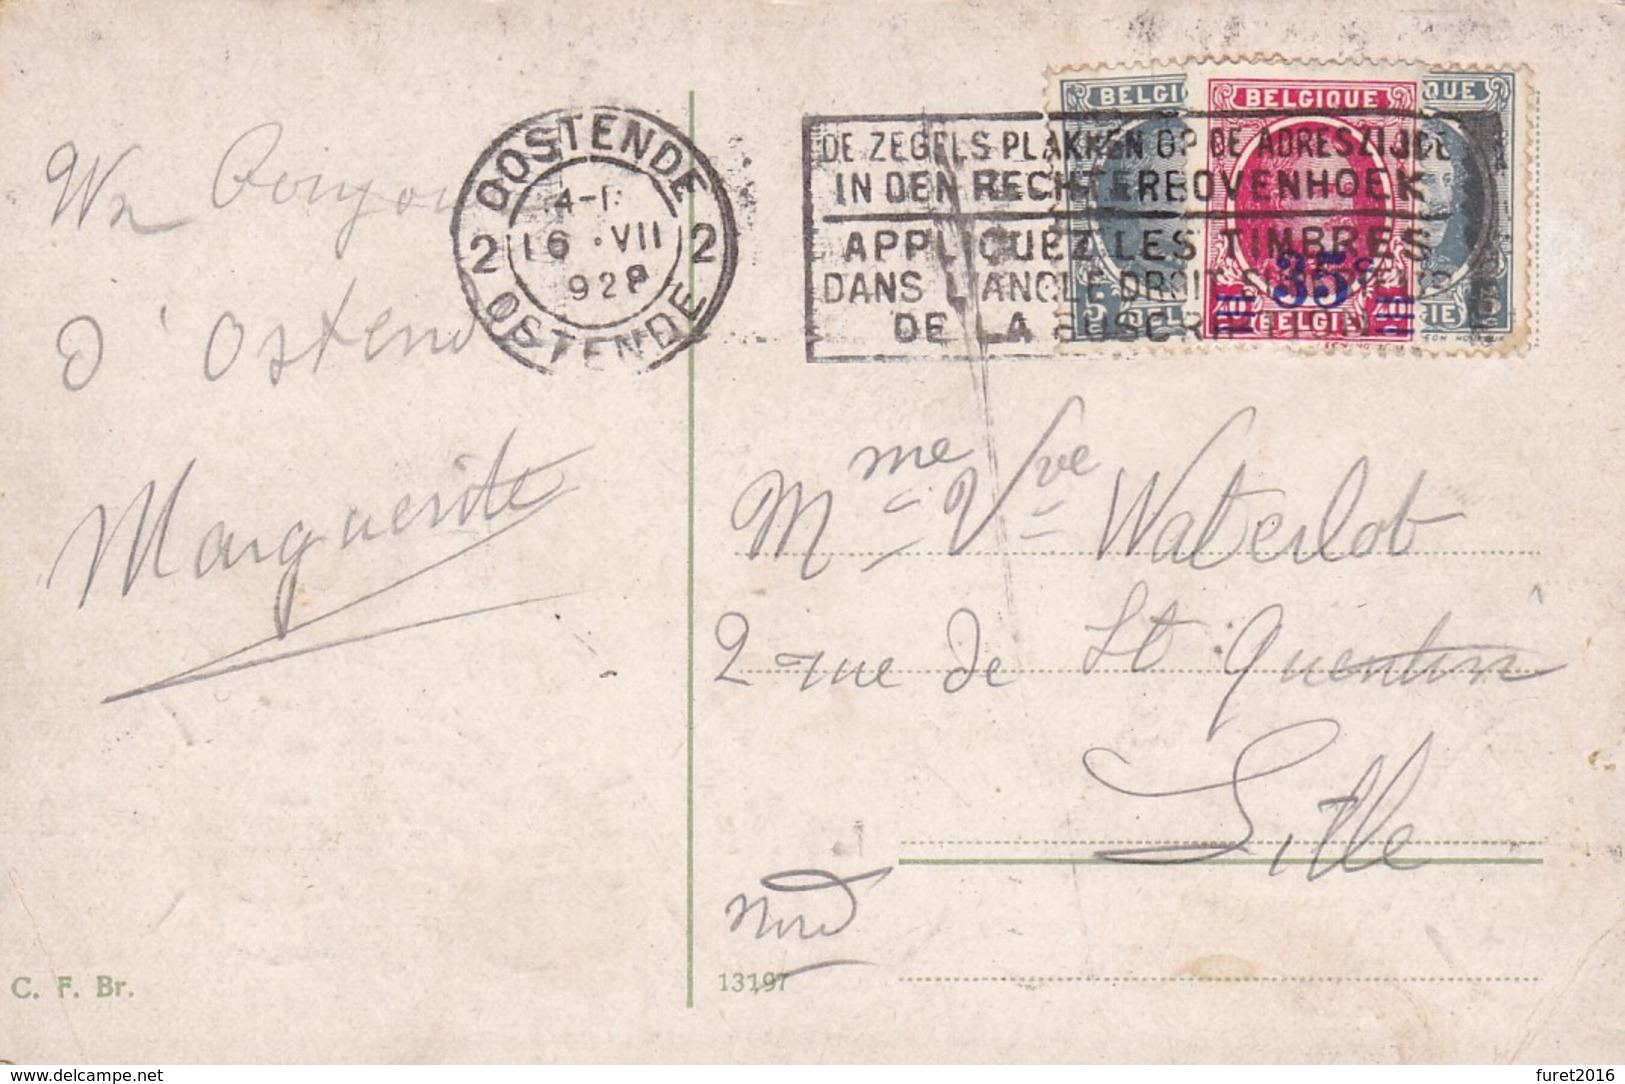 Un Bonjour
d'Ostende
Marguerite
OOSTENDE
2 2
16 · VII
928
OSTENDE
DE ZEGELS PLAKKEN OP DE ADRESZIJDE
IN DEN RECHTERBOVENHOEK
APPLIQUEZ LES TIMBRES
DANS L'ANGLE DROIT SUPERIEUR
DE LA SUSCRIPTION
BELGIQUE
35c
BELGIË
Mme Vve Waterlot
2 rue de St Quentin
Lille
Nord
C. F. Br.
13197
delcampe.net
furet2016